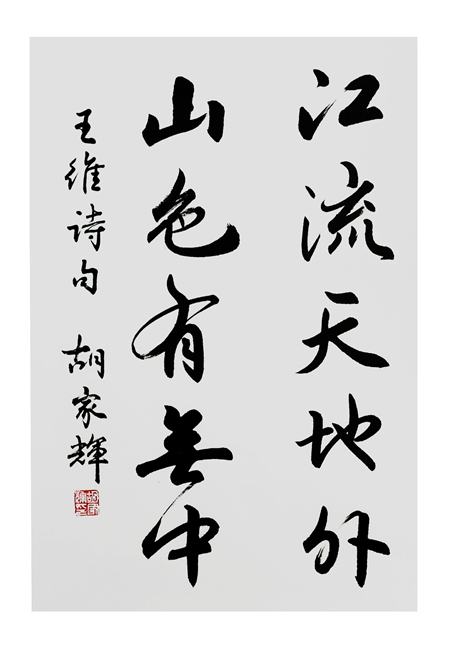 江流天地外
山色有無中
王維诗句 胡家輝